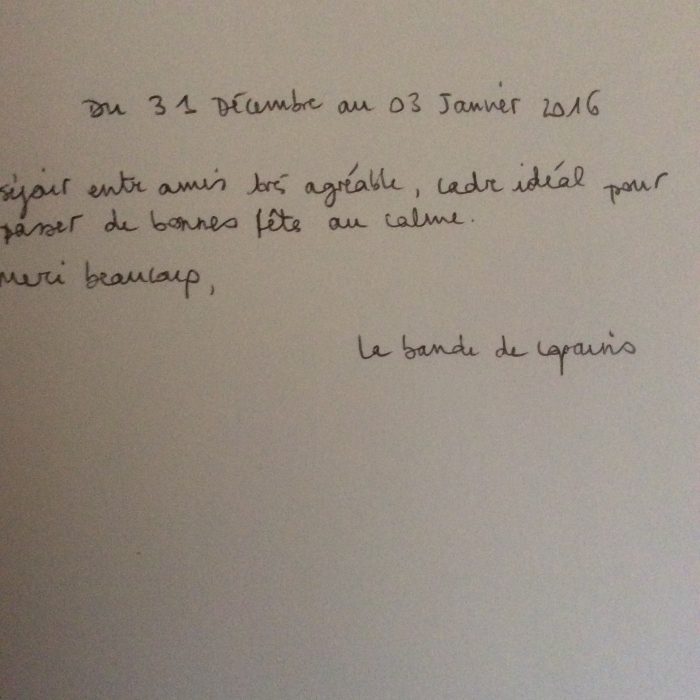 Du 31 Décembre au 03 Janvier 2016
séjour entre amis très agréable, cadre idéal pour
passer de bonnes fête au calme.
merci beaucoup,
La bande de copains